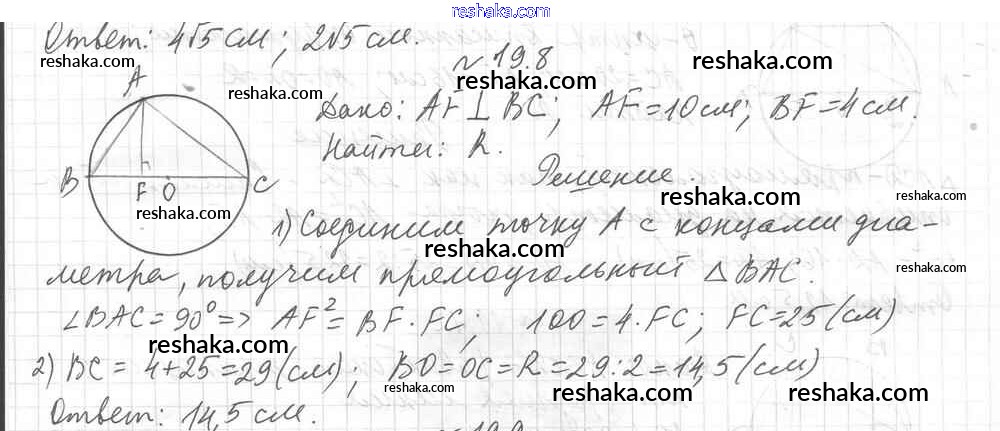 reshaka.com
Ответ: 4√5 см; 2√5 см.
№ 19.8
Дано: AF ⊥ BC; AF = 10 см; BF = 4 см.
Найти: R.
Решение.
A
B F O C
1) Соединим точку A с концами диа-
метра, получим прямоугольный △ BAC.
∠BAC = 90° => AF² = BF · FC; 100 = 4 · FC; FC = 25 (см)
2) BC = 4 + 25 = 29 (см); BO = OC = R = 29 : 2 = 14,5 (см)
Ответ: 14,5 см.
reshaka.com
reshaka.com
reshaka.com
reshaka.com
reshaka.com
reshaka.com
reshaka.com
reshaka.com
reshaka.com
reshaka.com
reshaka.com
reshaka.com
reshaka.com